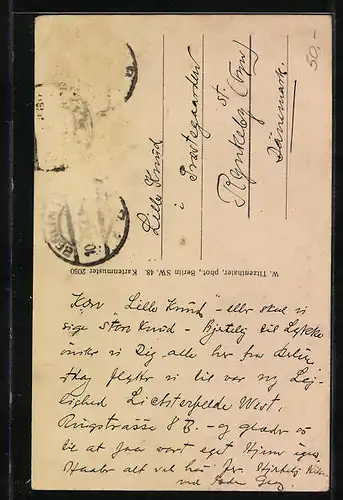 50,-
Lille Knud
i Præstegaarden
Rynkeby St.
(Fyn)
Dänemark.
W. Titzenthaler, phot., Berlin SW. 48. Kartenmuster 2050
Kære "Lille Knud" - eller skal vi
sige Store Knud - Hjertelig til Lykke
ønsker vi Dig alle her fra Berlin
Idag flytter vi til vor ny Lej-
lighed Lichterfelde West,
Ringstrasse 8 B. - og glæder os
til at faa vort eget Hjem igen
Haaber alt vel hos Jer. Hjertelig Hilsen